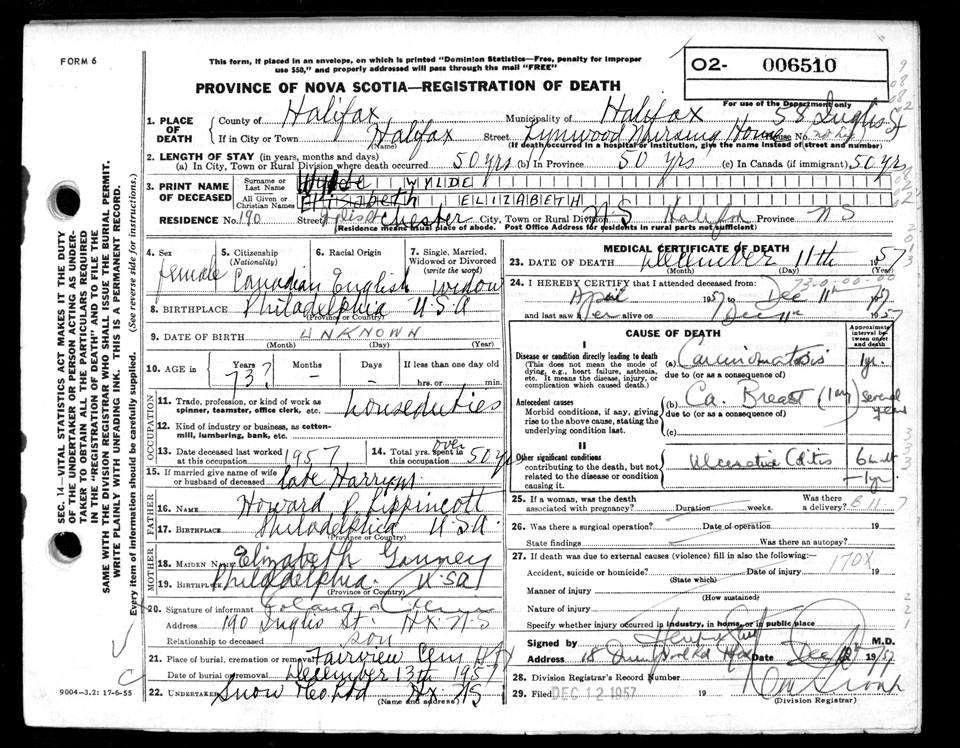 FORM 6
This form, if placed in an envelope, on which is printed "Dominion Statistics—Free, penalty for improper
use $50," and properly addressed will pass through the mail "FREE"
O2- 006510
PROVINCE OF NOVA SCOTIA—REGISTRATION OF DEATH
For use of the Department only
1. PLACE OF DEATH
County of Halifax Municipality of Halifax 58 Inglis St
If in City or Town Halifax Street Lynwood Nursing Home House No.
(Name) (If death occurred in a hospital or institution, give the name instead of street and number)
2. LENGTH OF STAY (in years, months and days)
(a) In City, Town or Rural Division where death occurred 50 yrs (b) In Province 50 yrs (c) In Canada (if immigrant) 50 yrs
3. PRINT NAME OF DECEASED
Surname or Last Name WYLDE
All Given or Christian Names Elizabeth ELIZABETH
RESIDENCE No. 190 Street Chester City, Town or Rural Division NS Halifax Province NS
(Residence means usual place of abode. Post Office Address for residents in rural parts not sufficient)
4. Sex female
5. Citizenship (Nationality) Canadian
6. Racial Origin English
7. Single, Married, Widowed or Divorced (write the word) Widow
8. BIRTHPLACE Philadelphia USA
(Province or Country)
9. DATE OF BIRTH UNKNOWN
(Month) (Day) (Year)
10. AGE in Years 73? Months - Days - If less than one day old
hrs. or min.
OCCUPATION
11. Trade, profession, or kind of work as spinner, teamster, office clerk, etc. houseduties
12. Kind of industry or business, as cotton-mill, lumbering, bank, etc.
13. Date deceased last worked at this occupation 1957
14. Total yrs. spent in this occupation over 50 yrs
15. If married give name of wife or husband of deceased late
FATHER
16. NAME Howard P. Lippincott
17. BIRTHPLACE Philadelphia USA
(Province or Country)
MOTHER
18. MAIDEN NAME Elizabeth
19. BIRTHPLACE Philadelphia USA
(Province or Country)
20. Signature of informant
Address 190 Inglis St. Hx. N-S
Relationship to deceased son
21. Place of burial, cremation or removal Fairview Cem Hfx
Date of burial or removal December 13th 1957
22. UNDERTAKER Snow & Co Ltd Hx NS
(Name and address)
9004-3.2: 17-6-55
MEDICAL CERTIFICATE OF DEATH
23. DATE OF DEATH December 11th 1957
(Month) (Day) (Year)
24. I HEREBY CERTIFY that I attended deceased from:
April 1957 to Dec 11th 1957
and last saw her alive on Dec 11th 1957
CAUSE OF DEATH
Approximate interval between onset and death
I
Disease or condition directly leading to death
(This does not mean the mode of dying, e.g., heart failure, asthenia, etc. It means the disease, injury, or complication which caused death.)
(a) Carcinomatosis 1 yr.
due to (or as a consequence of)
Antecedent causes
Morbid conditions, if any, giving rise to the above cause, stating the underlying condition last.
(b) Ca. Breast several years
due to (or as a consequence of)
(c)
II
Other significant conditions
contributing to the death, but not related to the disease or condition causing it.
Ulcerative Colitis 6 mth - 1 yr.
25. If a woman, was the death associated with pregnancy? Duration weeks. Was there a delivery?
26. Was there a surgical operation? Date of operation 19
State findings Was there an autopsy?
27. If death was due to external causes (violence) fill in also the following:—
170X
Accident, suicide or homicide? Date of injury 19
(State which)
Manner of injury
(How sustained)
Nature of injury
Specify whether injury occurred in industry, in home, or in public place
Signed by M.D.
Address 18 Hfx Date Dec 1957
28. Division Registrar's Record Number
29. Filed DEC 12 1957 19
(Division Registrar)
SEC. 14—VITAL STATISTICS ACT MAKES IT THE DUTY
OF THE UNDERTAKER OR PERSON ACTING AS UNDER-
TAKER TO OBTAIN ALL THE PARTICULARS REQUIRED
IN THE "REGISTRATION OF DEATH" AND TO FILE THE
SAME WITH THE DIVISION REGISTRAR WHO SHALL ISSUE THE BURIAL PERMIT.
WRITE PLAINLY WITH UNFADING INK. THIS IS A PERMANENT RECORD.
Every item of information should be carefully supplied. (See reverse side for instructions.)